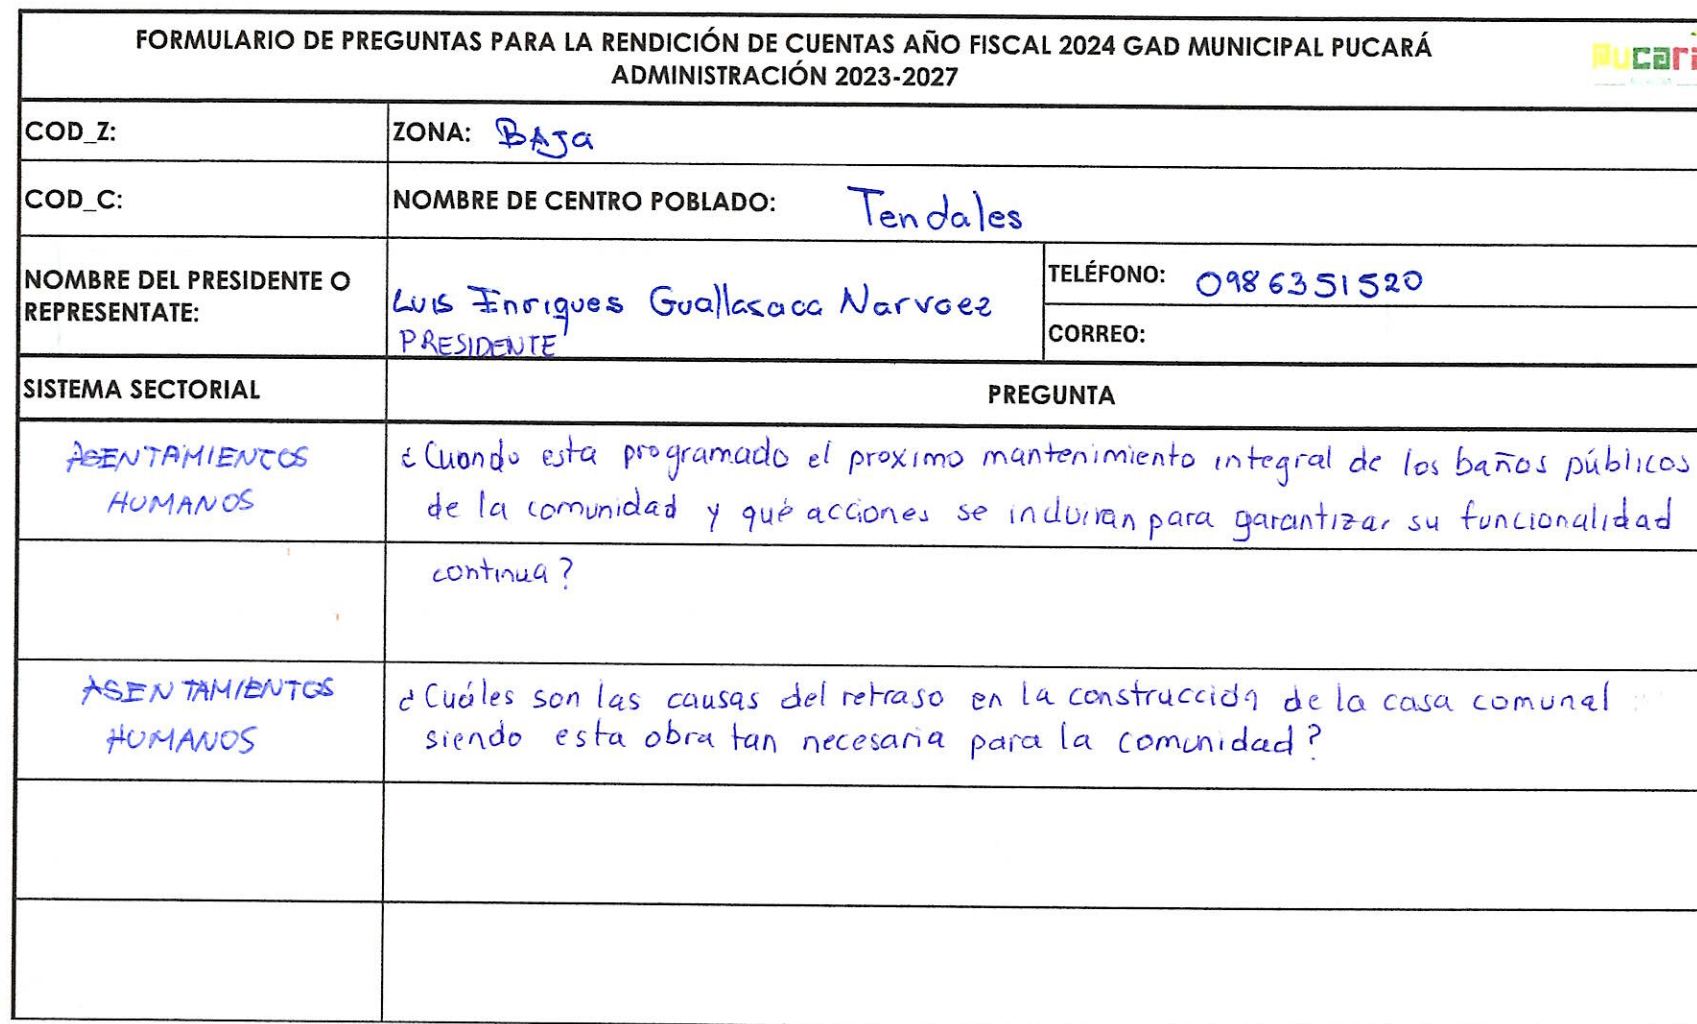 FORMULARIO DE PREGUNTAS PARA LA RENDICIÓN DE CUENTAS AÑO FISCAL 2024 GAD MUNICIPAL PUCARÁ
ADMINISTRACIÓN 2023-2027
Pucará
COD_Z:
ZONA: BAJa
COD_C:
NOMBRE DE CENTRO POBLADO: Tendales
NOMBRE DEL PRESIDENTE O
REPRESENTATE:
Luis Enrigues Guallasaca Narvaez
PRESIDENTE
TELÉFONO: 0986351520
CORREO:
SISTEMA SECTORIAL
PREGUNTA
ASENTAMIENTOS
HUMANOS
¿Cuando esta programado el proximo mantenimiento integral de los baños públicos
de la comunidad y qué acciones se incluiran para garantizar su funcionalidad
continua?
ASENTAMIENTOS
HUMANOS
¿Cuáles son las causas del retraso en la construcción de la casa comunal
siendo esta obra tan necesaria para la comunidad?